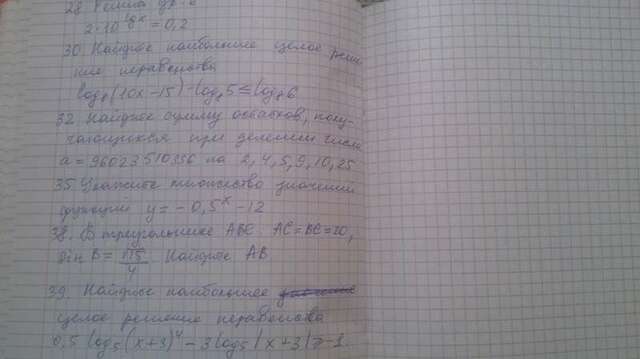 28 Решить ур-е
2·10^lg x = 0,2
30 Найдите наибольшее целое реше-
ние неравенства
log₈(10x-15)-log₈5≤log₈6
32 Найдите сумму остатков, полу-
чающихся при делении числа
a=96023510356 на 2,4,5,9,10,25
35 Укажите множество значений
функций y=-0,5ˣ-12
38. В треугольнике ABC AC=BC=20,
sin B=√15/4 Найдите AB
39 Найдите наибольшее
целое решение неравенства
0,5 log₅(x+3)⁴-3log₅(x+3)≥-1.